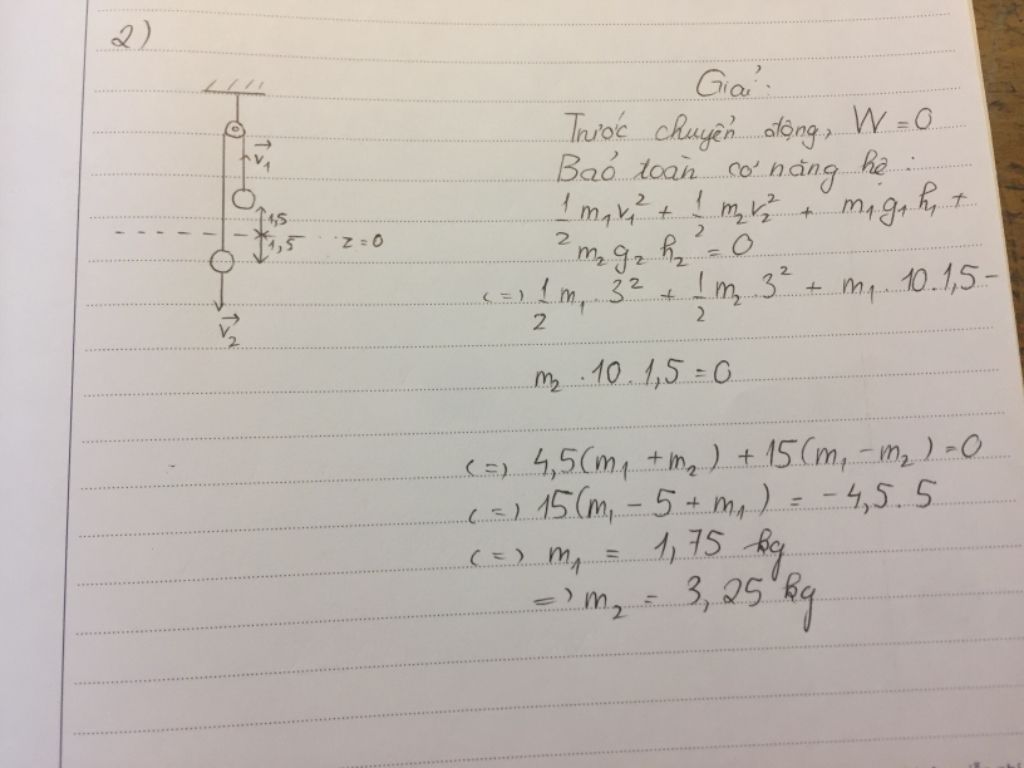 2)
Giải:
Trước chuyển động, W = 0
Bảo toàn cơ năng hệ:
1/2 m₁v₁² + 1/2 m₂v₂² + m₁g₁h₁ +
m₂g₂h₂ = 0
(=) 1/2 m₁ . 3² + 1/2 m₂ . 3² + m₁ . 10 . 1,5 -
m₂ . 10 . 1,5 = 0
(=) 4,5(m₁ + m₂) + 15(m₁ - m₂) = 0
(=) 15(m₁ - 5 + m₁) = -4,5 . 5
(=) m₁ = 1,75 kg
=) m₂ = 3,25 kg
v₁
1,5
1,5 z = 0
v₂